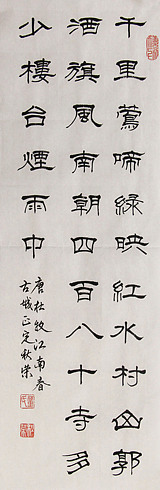 千里鶯啼綠映紅水村山郭
酒旗風南朝四百八十寺多
少樓台煙雨中
唐杜牧江南春
古城正定秋榮